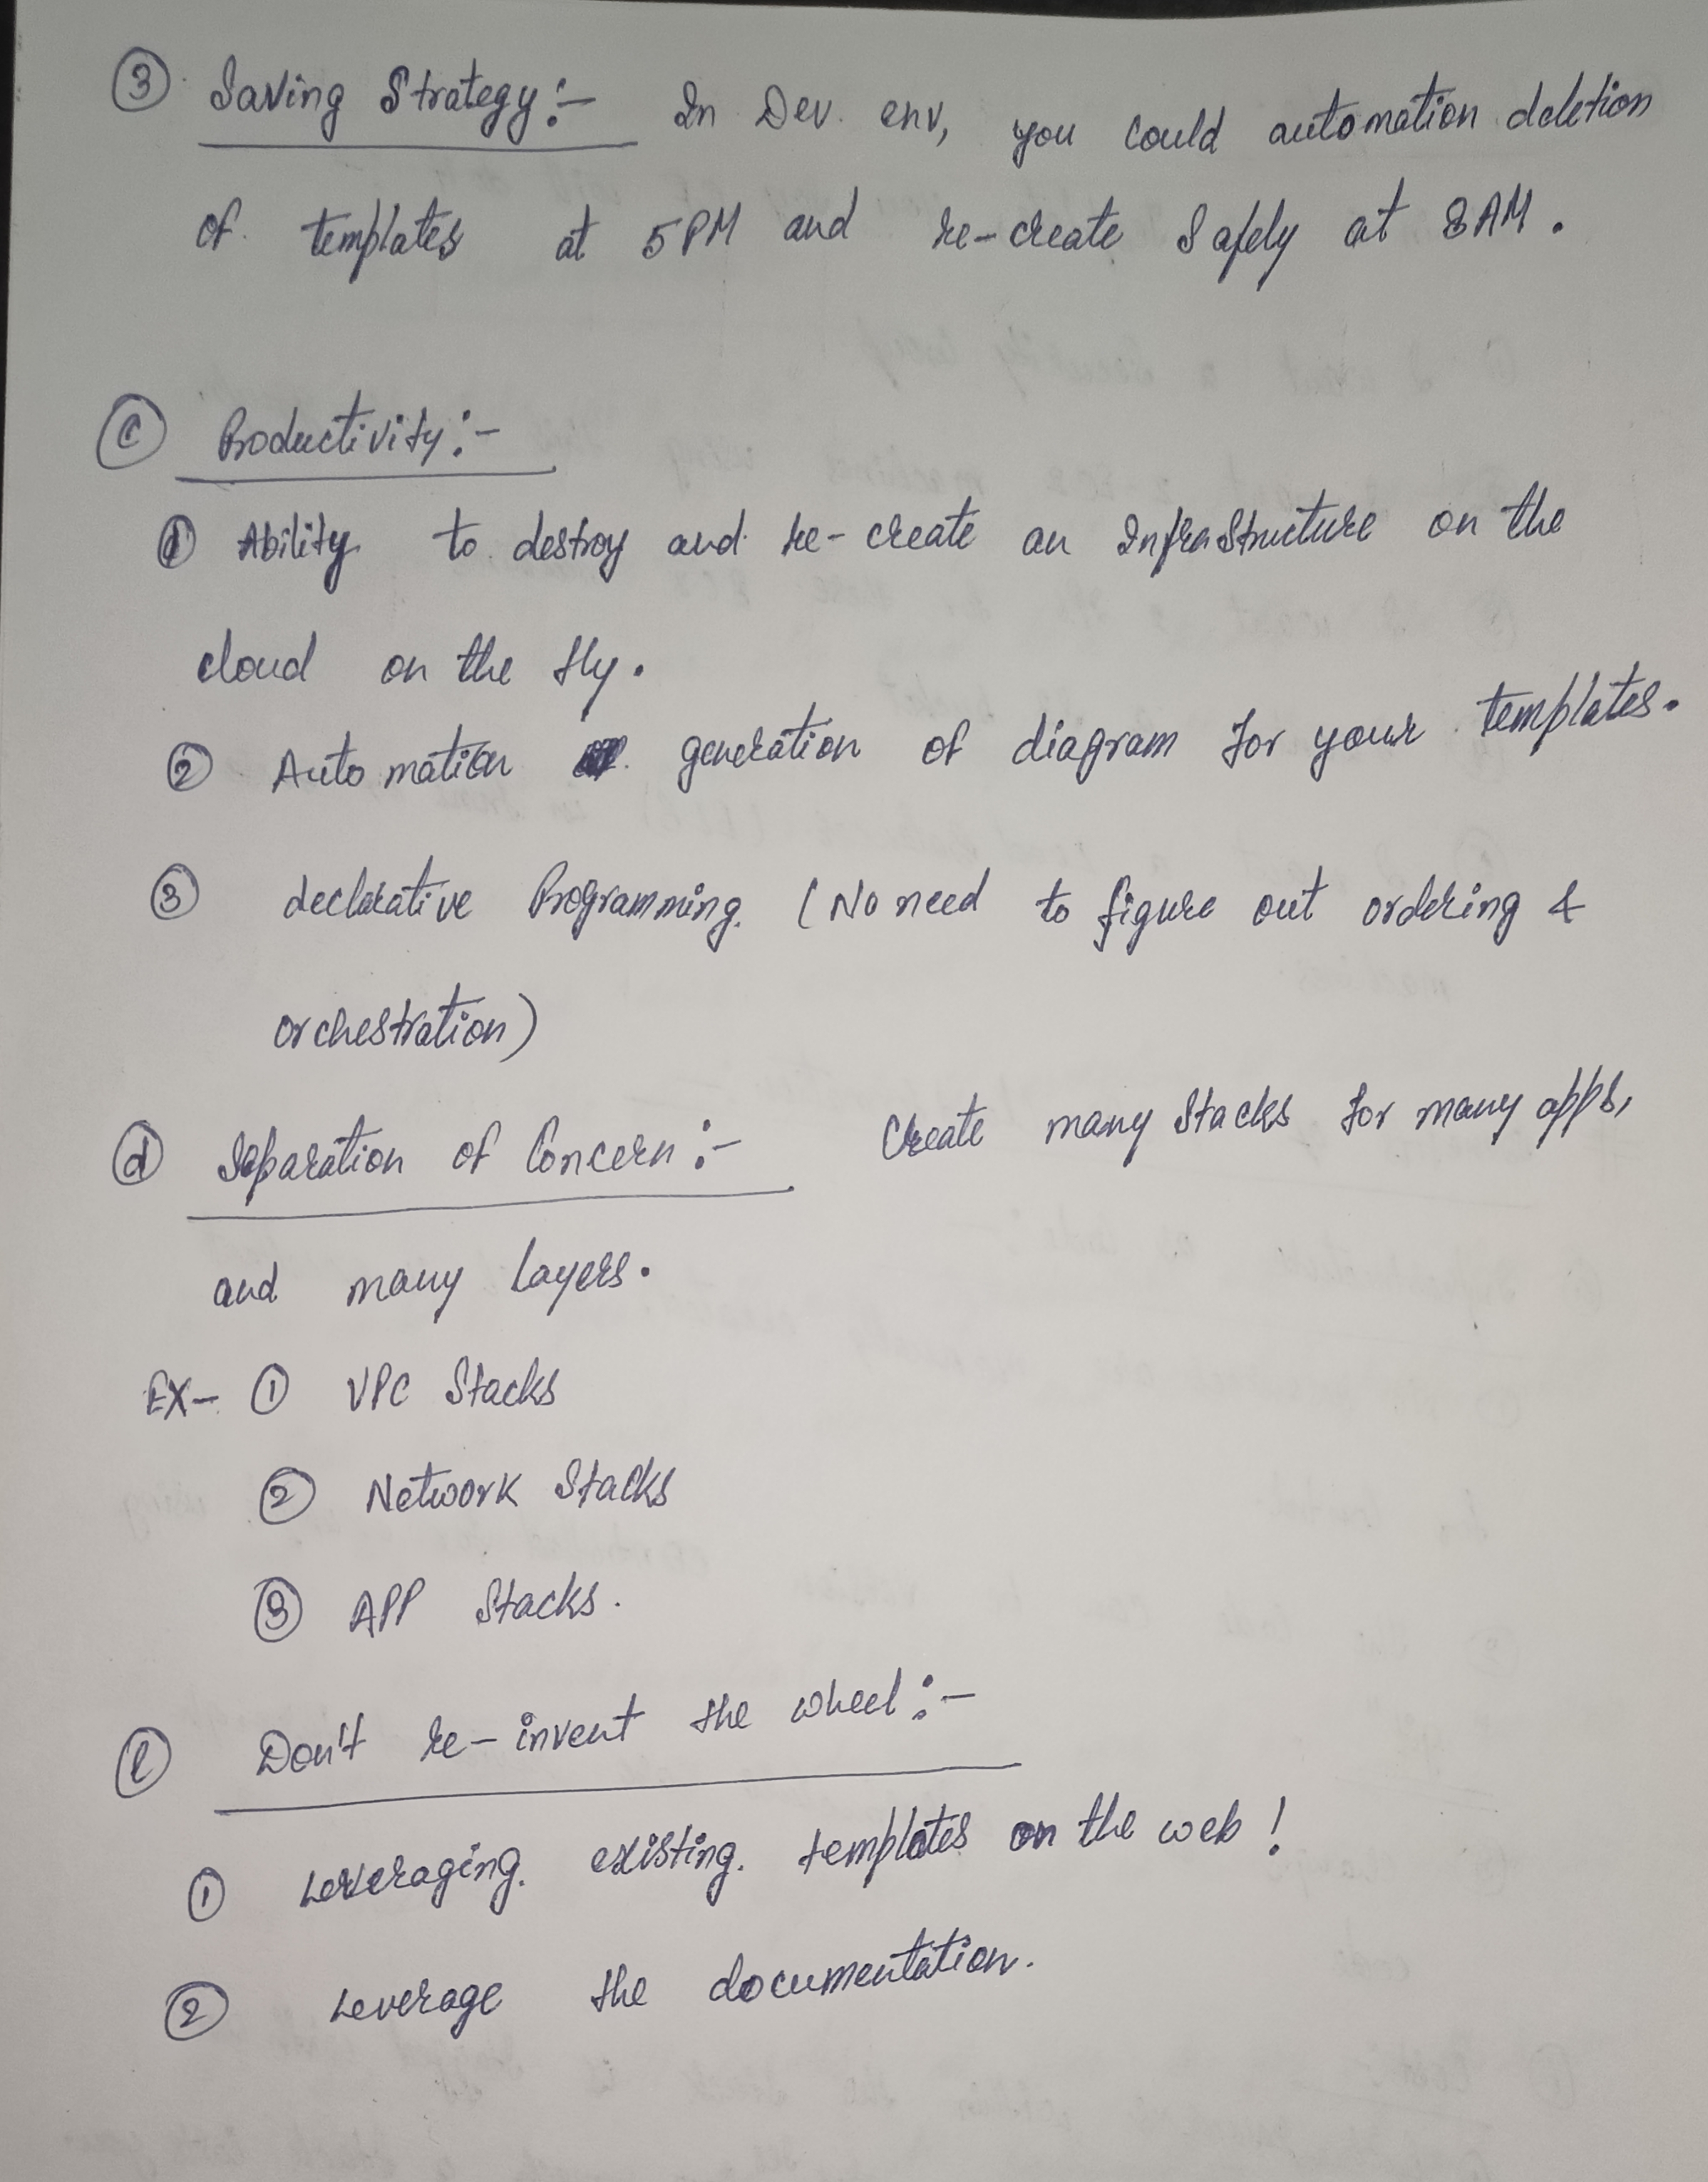 ③ Saving Strategy:- In Dev. env, you could automation deletion
of templates at 5PM and re-create Safely at 8AM.
ⓒ Productivity:-
① Ability to destroy and re-create an InfraStructure on the
cloud on the fly.
② Automation generation of diagram for your templates.
③ declarative Programming. (No need to figure out ordering &
orchestration)
ⓓ Separation of Concern:- Create many Stacks for many apps,
and many Layers.
EX- ① VPC Stacks
② Network Stacks
③ APP Stacks.
ⓔ Don't re-invent the wheel:-
① Leveraging. existing. templates on the web!
② Leverage the documentation.